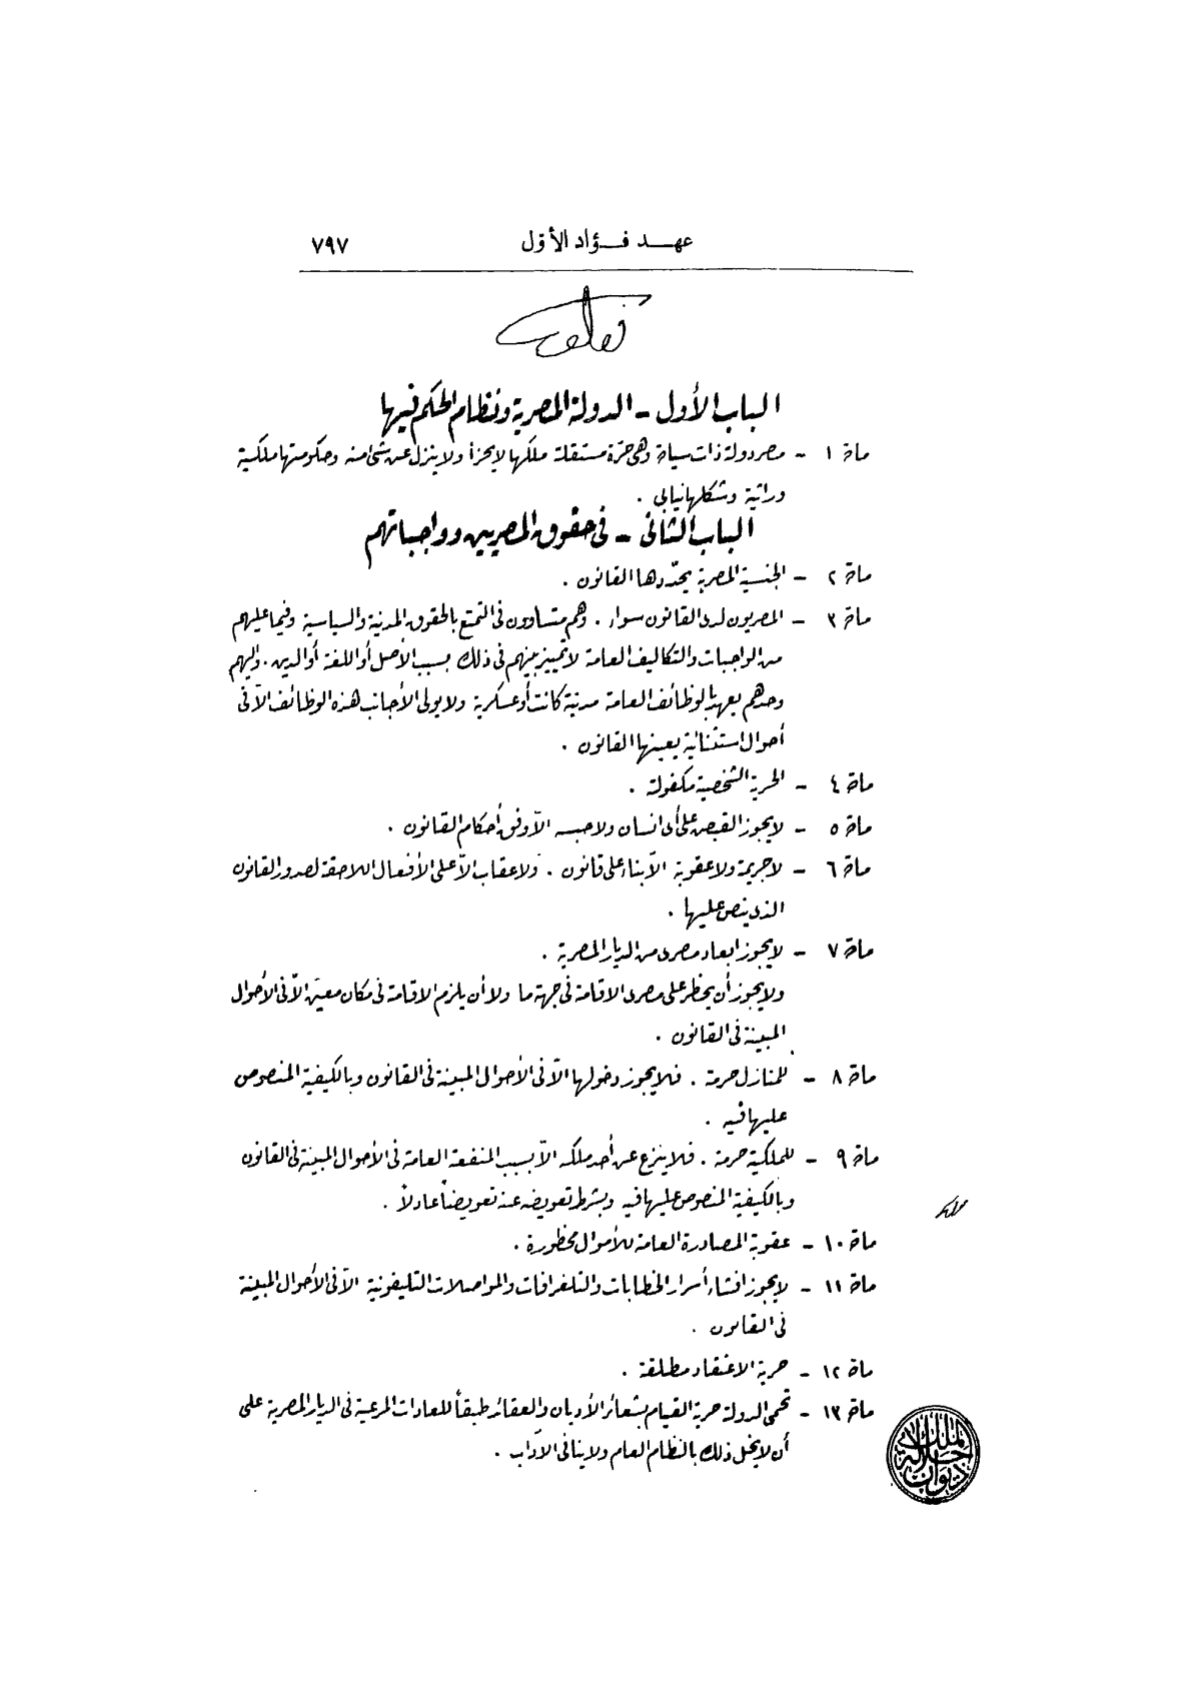 عهد فؤاد الأوّل ٧٩٧
الباب الأول - الدولة المصرية ونظام الحكم فيها
مادة ١ - مصر دولة ذات سيادة وهى حرّة مستقلة ملكها لا يجزأ ولا ينزل عن شئ منه وحكومتها ملكية
وراثية وشكلها نيابى .
الباب الثانى - فى حقوق المصريين وواجباتهم
مادة ٢ - الجنسية المصرية يحدّدها القانون .
مادة ٣ - المصريون لدى القانون سواء . وهم متساوون فى التمتع بالحقوق المدنية والسياسية وفيما عليهم
من الواجبات والتكاليف العامة لا تمييز بينهم فى ذلك بسبب الأصل أو اللغة أو الدين . واليهم
وحدهم يعهد بالوظائف العامة مدنية كانت أو عسكرية ولا يولى الأجانب هذه الوظائف الاّ فى
أحوال استثنائية يعينها القانون .
مادة ٤ - الحرية الشخصية مكفولة .
مادة ٥ - لا يجوز القبض على أى انسان ولا حبسه الاّ وفق أحكام القانون .
مادة ٦ - لا جريمة ولا عقوبة الاّ بناء على قانون . ولا عقاب الاّ على الأفعال اللاحقة لصدور القانون
الذى ينص عليها .
مادة ٧ - لا يجوز ابعاد مصرى من الديار المصرية .
ولا يجوز أن يحظر على مصرى الاقامة فى جهة ما ولا أن يلزم الاقامة فى مكان معين الاّ فى الأحوال
المبينة فى القانون .
مادة ٨ - للمنازل حرمة . فلا يجوز دخولها الاّ فى الأحوال المبينة فى القانون وبالكيفية المنصوص
عليها فيه .
مادة ٩ - للملكية حرمة . فلا ينزع عن أحد ملكه الاّ بسبب المنفعة العامة فى الأحوال المبينة فى القانون
وبالكيفية المنصوص عليها فيه وبشرط تعويضه عنه تعويضاً عادلاً .
مادة ١٠ - عقوبة المصادرة العامة للأموال محظورة .
مادة ١١ - لا يجوز افشاء أسرار الخطابات والتلغرافات والمواصلات التليفونية الاّ فى الأحوال المبينة
فى القانون .
مادة ١٢ - حرية الاعتقاد مطلقة .
مادة ١٣ - تحمى الدولة حرية القيام بشعائر الأديان والعقائد طبقاً للعادات المرعية فى الديار المصرية على
أن لا يخل ذلك بالنظام العام ولا ينافى الآداب .
ديوان جلالة الملك